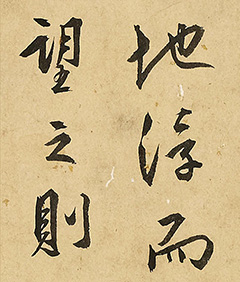 地淳而
望之則